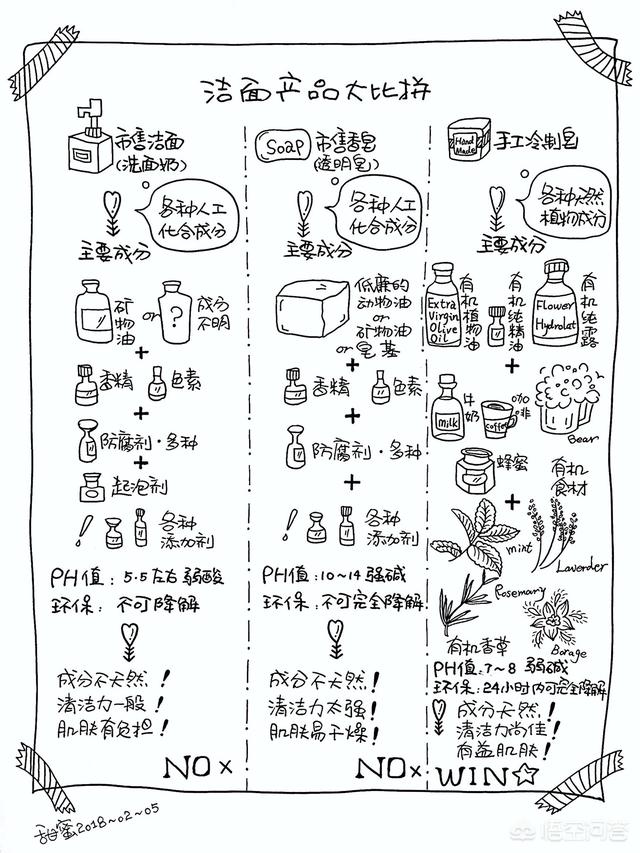 洁面产品大比拼
市售洁面
(洗面奶)
各种人工
化合成分
主要成分
矿物油
or
?
成分
不明
+
香精
色素
+
防腐剂·多种
+
起泡剂
各种
添加剂
PH值：5.5左右弱酸
环保：不可降解
成分不天然！
清洁力一般！
肌肤有负担！
NO x
Soap
市售香皂
(透明皂)
各种人工
化合成分
主要成分
低廉的
动物油
or
矿物油
or 皂基
+
香精
色素
+
防腐剂·多种
+
各种
添加剂
PH值：10~14强碱
环保：不可完全降解
成分不天然！
清洁力太强！
肌肤易干燥！
NO x
Hand
Made
手工冷制皂
各种天然
植物成分
主要成分
Extra
Virgin
Olive
Oil
有机植物油
有机纯精油
Flower
Hydrolat
有机纯露
+
milk
牛奶
coffee
咖啡
Bear
蜂蜜
有机
食材
+
mint
Lavender
Rosemary
Borage
有机香草
PH值：7~8 弱碱
环保：24小时内可完全降解
成分天然！
清洁力尚佳！
有益肌肤！
WIN☆
甜蜜2018~02~05
悟空问答